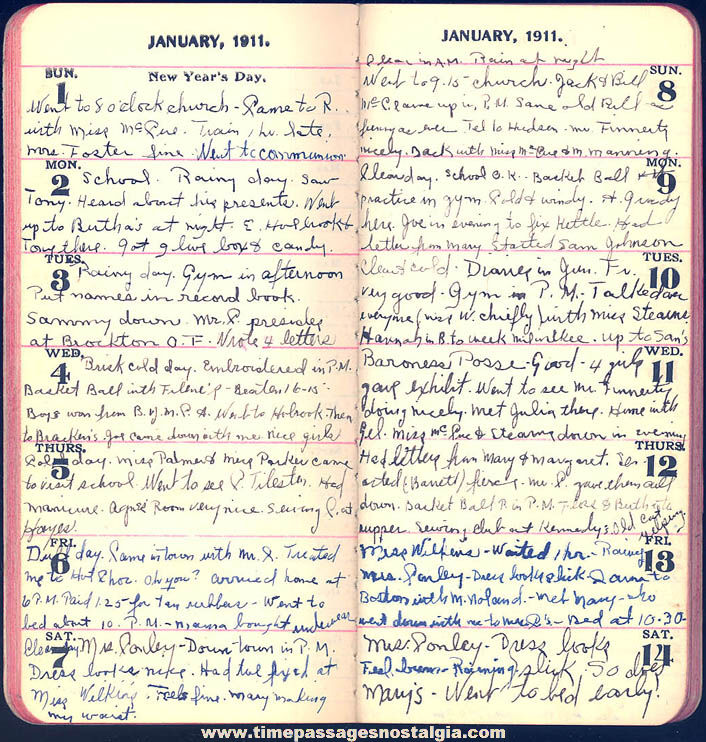 JANUARY, 1911.
SUN.
1
New Year's Day.
Went to 8 o'clock church - Came to R.
with Miss McCue. Train 1 hr. late.
Mrs. Foster fine. Went to communion.
MON.
2
School. Rainy day. Saw
Tony. Heard about his presents. Went
up to Bertha's at night. E. Holbrook &
Tony there. Got glove box & candy.
TUES.
3
Rainy day. Gym in afternoon
Put names in record book.
Sammy down. Mr. P. presides
at Brockton O.F. Wrote 4 letters
WED.
4
Brisk cold day. Embroidered in P.M.
Basket Ball with Filene's - Beaten 16-15
Boys won from B.Y.M.C.A. Went to Holbrook. Then
to Bracken's. Joe came down with me. Nice girls
THURS.
5
Cold day. Miss Palmer & Miss Parker came
to visit school. Went to see P. Tilesten. Had
manicure. Agnes' Room very nice. Sewing C. at
Hayes.
FRI.
6
Dull day. Came in town with Mr. S. Treated
me to Hot Choc. Oh you? arrived home at
6 P.M. Paid 1.25 for Tan rubbers - Went to
bed about 10. P.M. - Mama bought underwear
SAT.
7
Clear day Mrs. Conley - Down town in P.M.
Dress looks nice. Had hat fixed at
Miss Wilkins. Feels fine. Mary making
my waist.
JANUARY, 1911.
SUN.
8
Clear in A.M. Rain at night
Went to 9.15 church. Jack & Bill
McC. came up in P.M. Same old Bill as
funny as ever Tel to Hudson. Mr. Finnerty
nicely. Back with Miss McCue & M. Manning.
MON.
9
Clear day. School O.K. Basket Ball
practice in gym. Cold & windy. H. Grady
here. Joe in evening to fix Kettle. Had
letter from Mary. Started Sam Johnson
TUES.
10
Clear & cold. Diaries in Jun. Fr.
very good. Gym in P.M. Talked over
everyone (Miss W. chiefly) with Miss Stearns
Hannah in B. to week milwilkee. Up to San's
WED.
11
Baroness Posse - Good - 4 girls
gave exhibit. Went to see Mr. Finnerty
doing nicely. Met Julia there. Home with
Gel. Miss McCue & Stearns down in evening
THURS.
12
Had letters from Mary & Margaret.
acted (Barrett) fierce. Mr. P. gave them call
down. Basket Ball P. in P.M. & Bertha
supper. Sewing Club at Kennedy's. Old Cat
helping.
FRI.
13
Miss Wilkins - Waited 1 hr. - Rainy
Mrs. Conley - Dress looks slick - Came to
Boston with M. Noland. - Met Mary - who
went down with me to Mrs. C's - Bed at 10.30 -
SAT.
14
Mrs. Conley - Dress looks
slick, So does
Feel bum - Raining
Mary's - Went to bed early.
www.timepassagesnostalgia.com